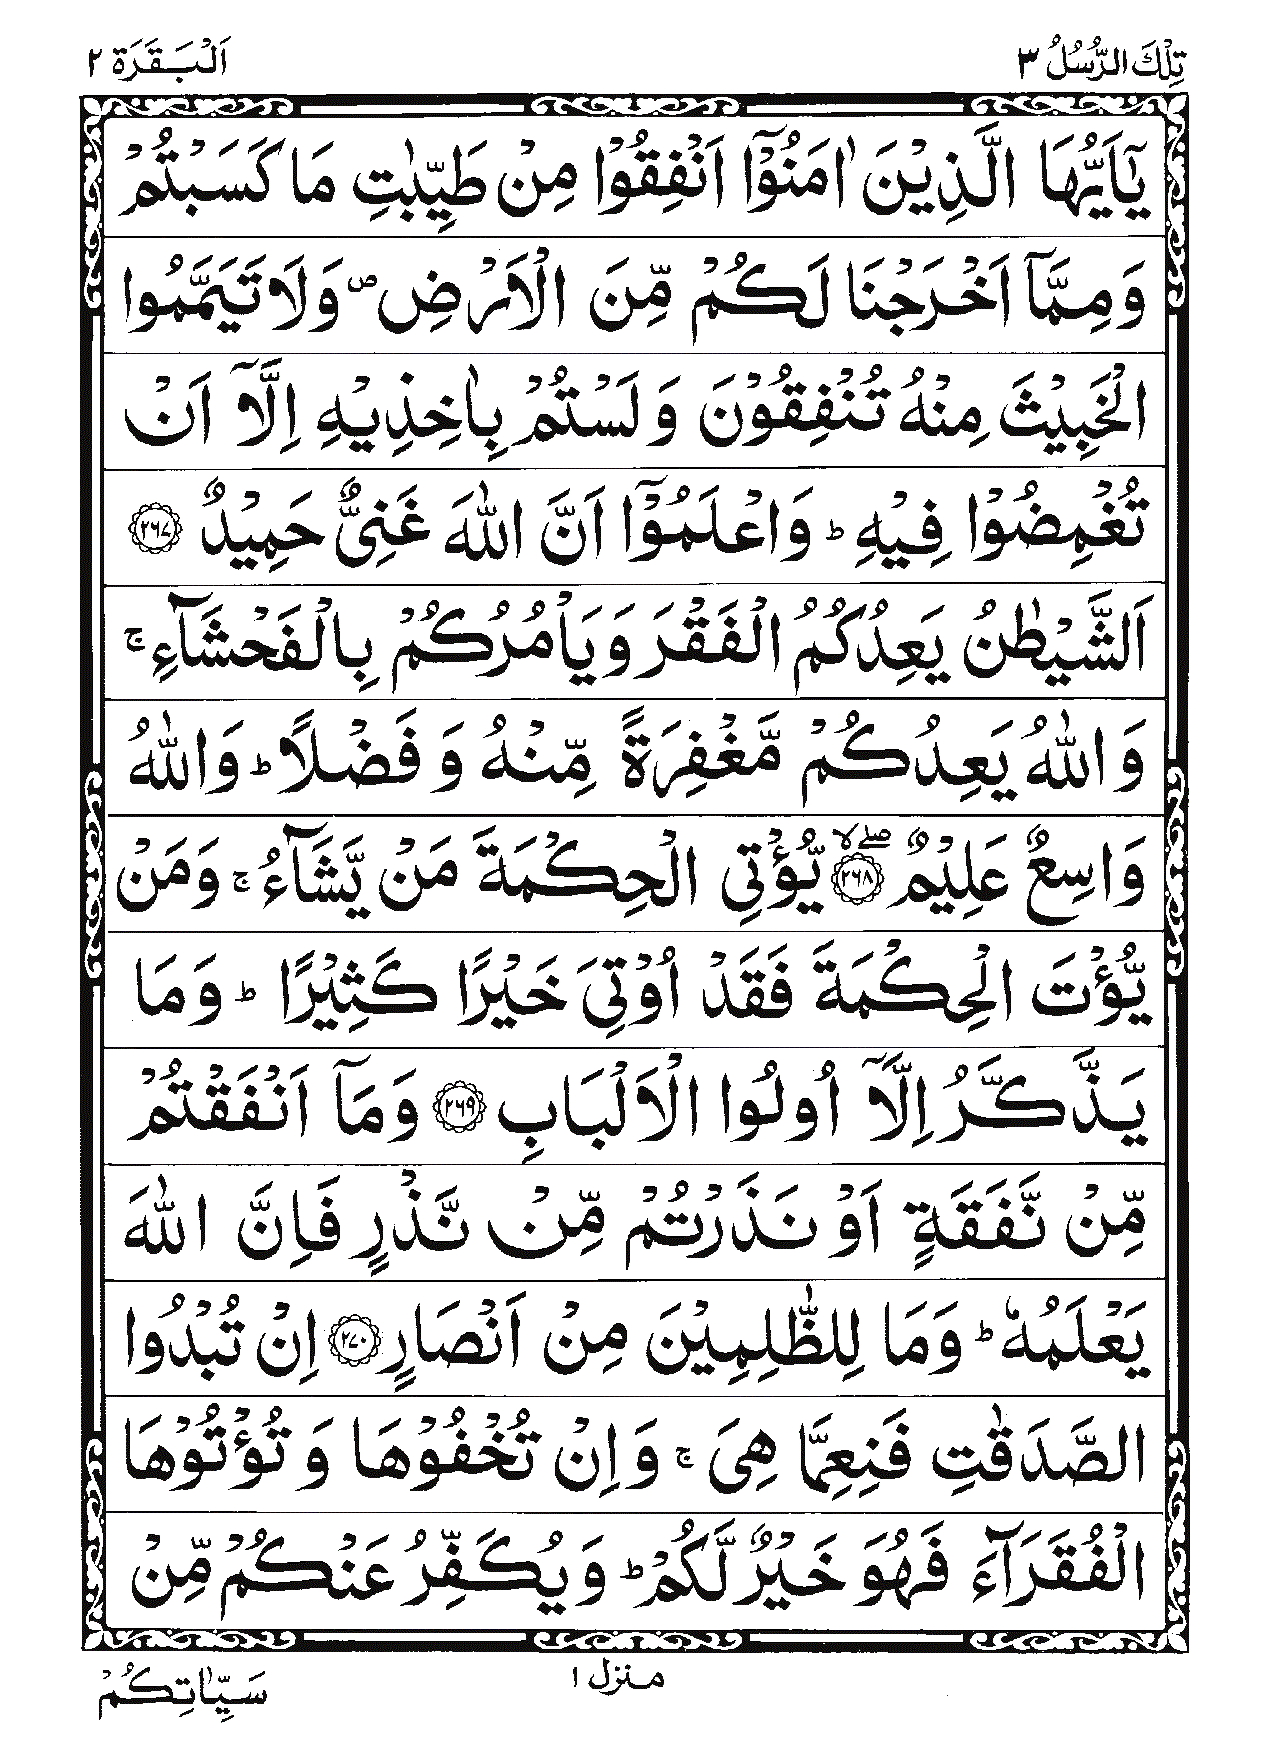 تِلْكَ الرُّسُلُ ٣
اَلْبَقَرَة ٢
يٰٓاَيُّهَا الَّذِيْنَ اٰمَنُوْٓا اَنْفِقُوْا مِنْ طَيِّبٰتِ مَا كَسَبْتُمْ
وَمِمَّآ اَخْرَجْنَا لَكُمْ مِّنَ الْاَرْضِ ۖ وَلَا تَيَمَّمُوا
الْخَبِيْثَ مِنْهُ تُنْفِقُوْنَ وَلَسْتُمْ بِاٰخِذِيْهِ اِلَّآ اَنْ
تُغْمِضُوْا فِيْهِ ؕ وَاعْلَمُوْٓا اَنَّ اللّٰهَ غَنِىٌّ حَمِيْدٌ ﴿٢٦٧﴾
اَلشَّيْطٰنُ يَعِدُكُمُ الْفَقْرَ وَيَاْمُرُكُمْ بِالْفَحْشَآءِ ۚ
وَاللّٰهُ يَعِدُكُمْ مَّغْفِرَةً مِّنْهُ وَفَضْلًا ؕ وَاللّٰهُ
وَاسِعٌ عَلِيْمٌ ﴿٢٦٨﴾ ۖۙ يُّؤْتِى الْحِكْمَةَ مَنْ يَّشَآءُ ۚ وَمَنْ
يُّؤْتَ الْحِكْمَةَ فَقَدْ اُوْتِىَ خَيْرًا كَثِيْرًا ؕ وَمَا
يَذَّكَّرُ اِلَّآ اُولُوا الْاَلْبَابِ ﴿٢٦٩﴾ وَمَآ اَنْفَقْتُمْ
مِّنْ نَّفَقَةٍ اَوْ نَذَرْتُمْ مِّنْ نَّذْرٍ فَاِنَّ اللّٰهَ
يَعْلَمُهٗ ؕ وَمَا لِلظّٰلِمِيْنَ مِنْ اَنْصَارٍ ﴿٢٧٠﴾ اِنْ تُبْدُوا
الصَّدَقٰتِ فَنِعِمَّا هِىَ ۚ وَاِنْ تُخْفُوْهَا وَتُؤْتُوْهَا
الْفُقَرَآءَ فَهُوَ خَيْرٌ لَّكُمْ ؕ وَيُكَفِّرُ عَنْكُمْ مِّنْ
منزل ١
سَيِّاٰتِكُمْ